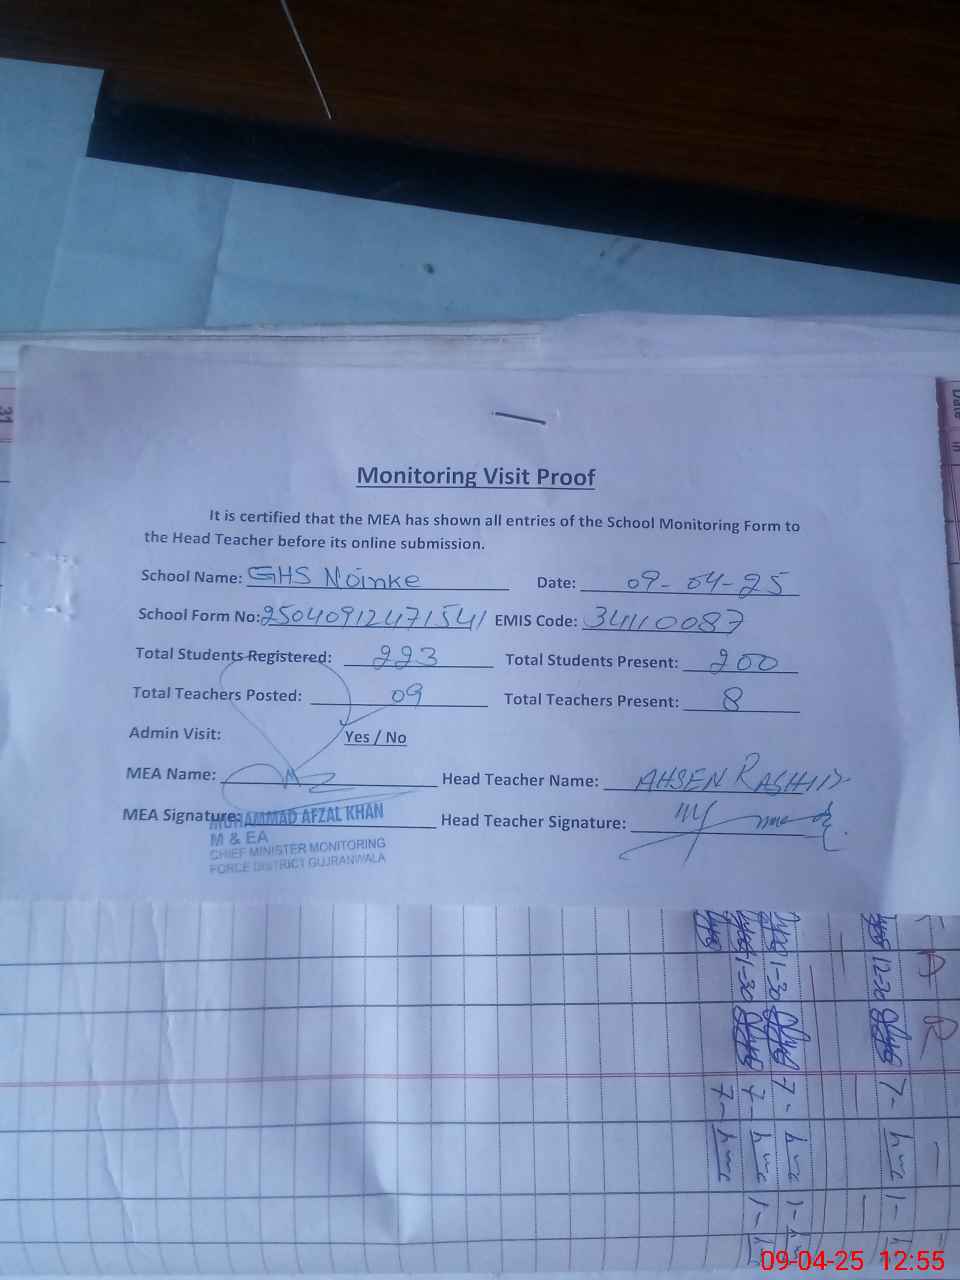 Monitoring Visit Proof
It is certified that the MEA has shown all entries of the School Monitoring Form to
the Head Teacher before its online submission.
School Name: GHS Noinke Date: 09-04-25
School Form No: 25040912471541 EMIS Code: 34110087
Total Students Registered: 223 Total Students Present: 200
Total Teachers Posted: 09 Total Teachers Present: 8
Admin Visit: Yes / No
MEA Name: Head Teacher Name: AHSEN RASHID
MEA Signature: Head Teacher Signature:
MUHAMMAD AFZAL KHAN
M & EA
CHIEF MINISTER MONITORING
FORCE DISTRICT GUJRANWALA
31
Date In
A R
12-30
1-30
1-30
09-04-25 12:55